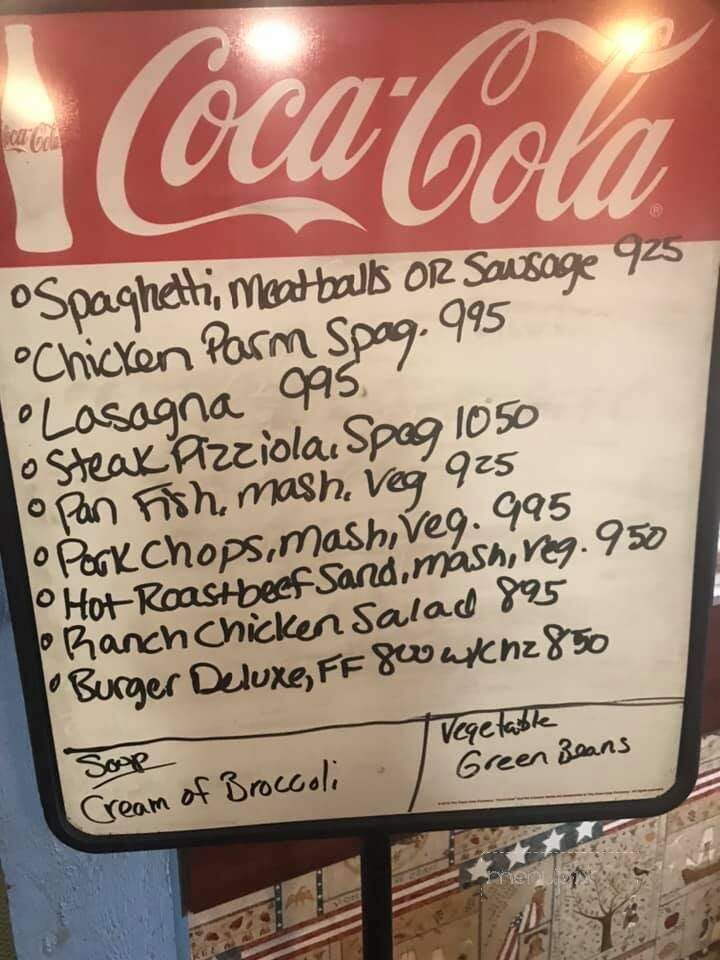 Coca-Cola
Coca-Cola
°Spaghetti, Meatballs OR Sausage 925
°Chicken Parm Spag. 995
°Lasagna 995
°Steak Pizziola, Spag 1050
°Pan Fish, mash, Veg 925
°Pork Chops, mash, Veg. 995
°Hot Roastbeef Sand, mash, veg. 950
°Ranch Chicken Salad 895
°Burger Deluxe, FF 800 w/chz 850
Soup
Cream of Broccoli
Vegetable
Green Beans